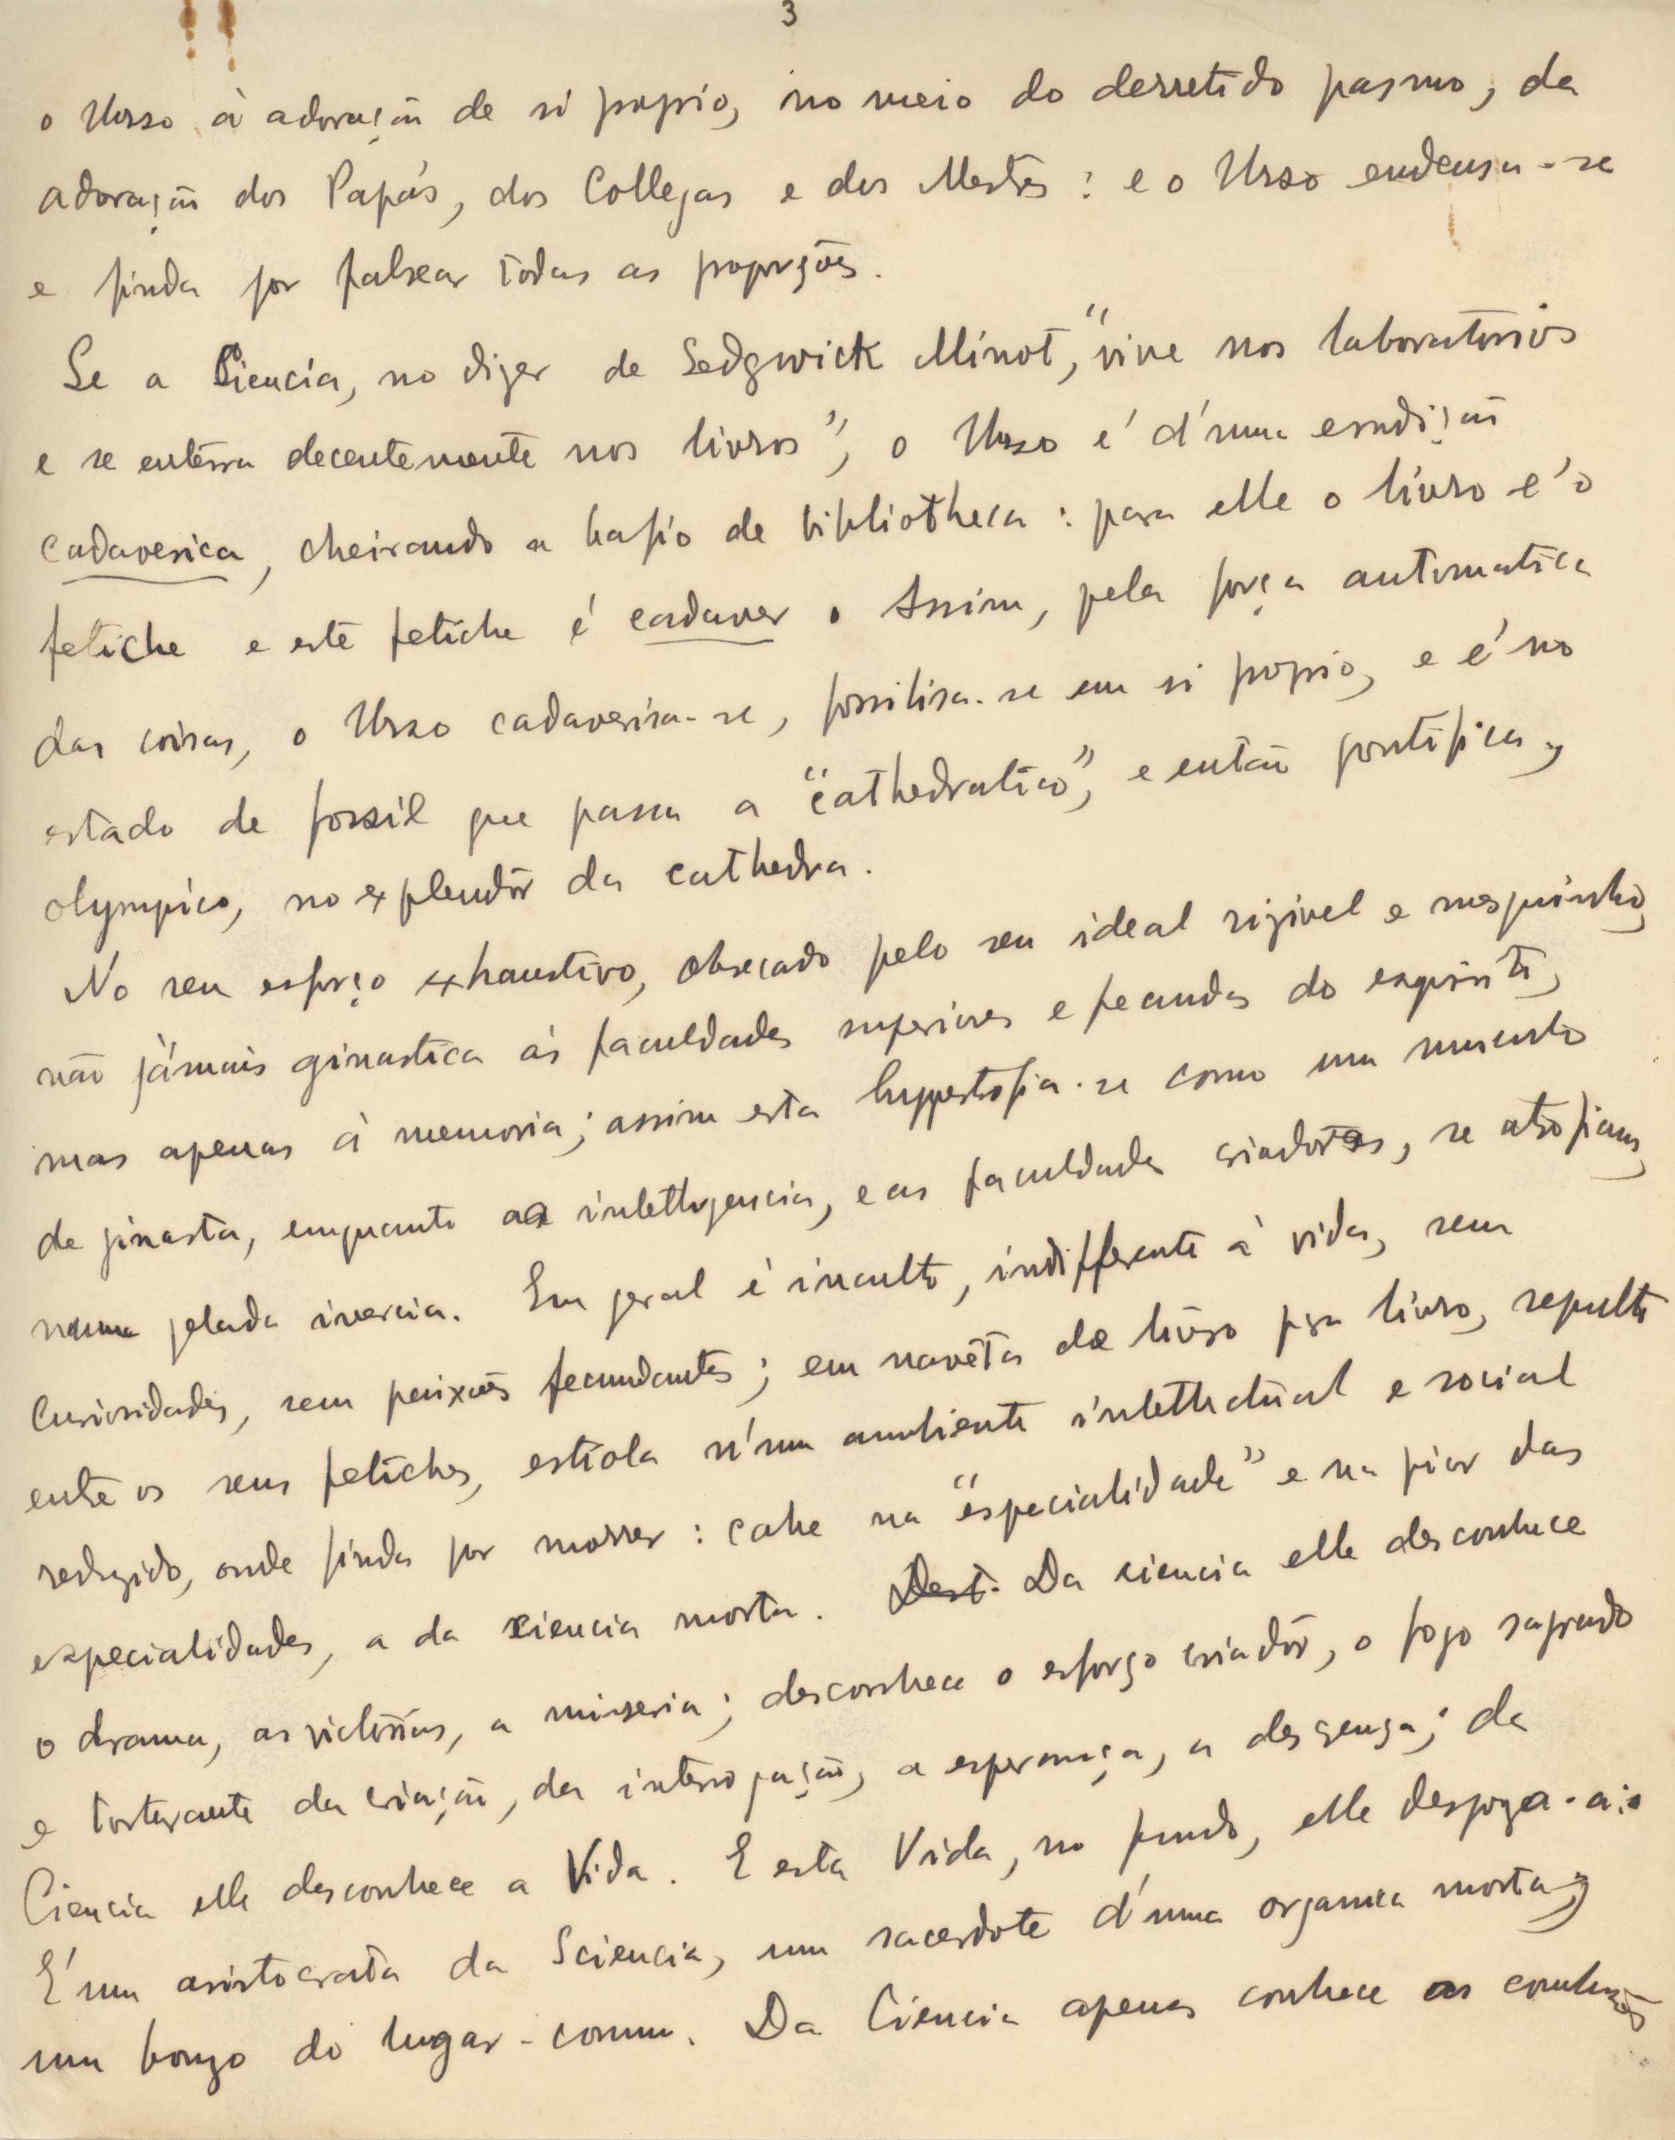 3
o Urso à adoração de si proprio, no meio do derretido pasmo, da
adoração dos Papás, dos Collegas e dos Mestres : e o Urso endeusa-se
e finda por falsear todas as proporções.
Se a Ciencia, no dizer de Sedgwick Minot, "vive nos laboratorios
e se enterra decentemente nos livros", o Urso é d'uma erudição
cadaverica, cheirando a bafio de bibliotheca : para elle o livro é o
fetiche e este fetiche é cadaver. Assim, pela força automatica
das coisas, o Urso cadaverisa-se, fossilisa-se em si proprio, e é no
estado de fossil que passa a "cathedratico", e então pontifica,
olympico, no explendôr da cathedra.
No seu esforço exhaustivo, obsecado pelo seu ideal rizivel e mesquinho,
não jámais ginastica ás faculdades superiores e fecundas do espirito,
mas apenas á memoria; assim esta hyppertrofia-se como um musculo
de ginasta, emquanto a intelligencia, e as faculdades criadoras, se atrofiam,
numa gelada inercia. Em geral é inculto, indifferente à vida, sem
curiosidades, sem paixões fecundantes; em navêta de livro pra livro, sepulto
entre os seus fetiches, estiola n'um ambiente intellectual e social
reduzido, onde finda por morrer : cahe na "especialidade" e na pior das
especialidades, a da ciencia morta. Dest. Da ciencia elle desconhece
o drama, as victorias, a miseria; desconhece o esforço criadôr, o fogo sagrado
e torturante da criação, da interrogação, a esperança, a descrença; da
Ciencia elle desconhece a Vida. E esta Vida, no fundo, elle despreza-a:
É um aristocrata da Sciencia, um sacerdote d'uma organica morta,
um bonzo do lugar-comum. Da Ciencia apenas conhece as conclusões